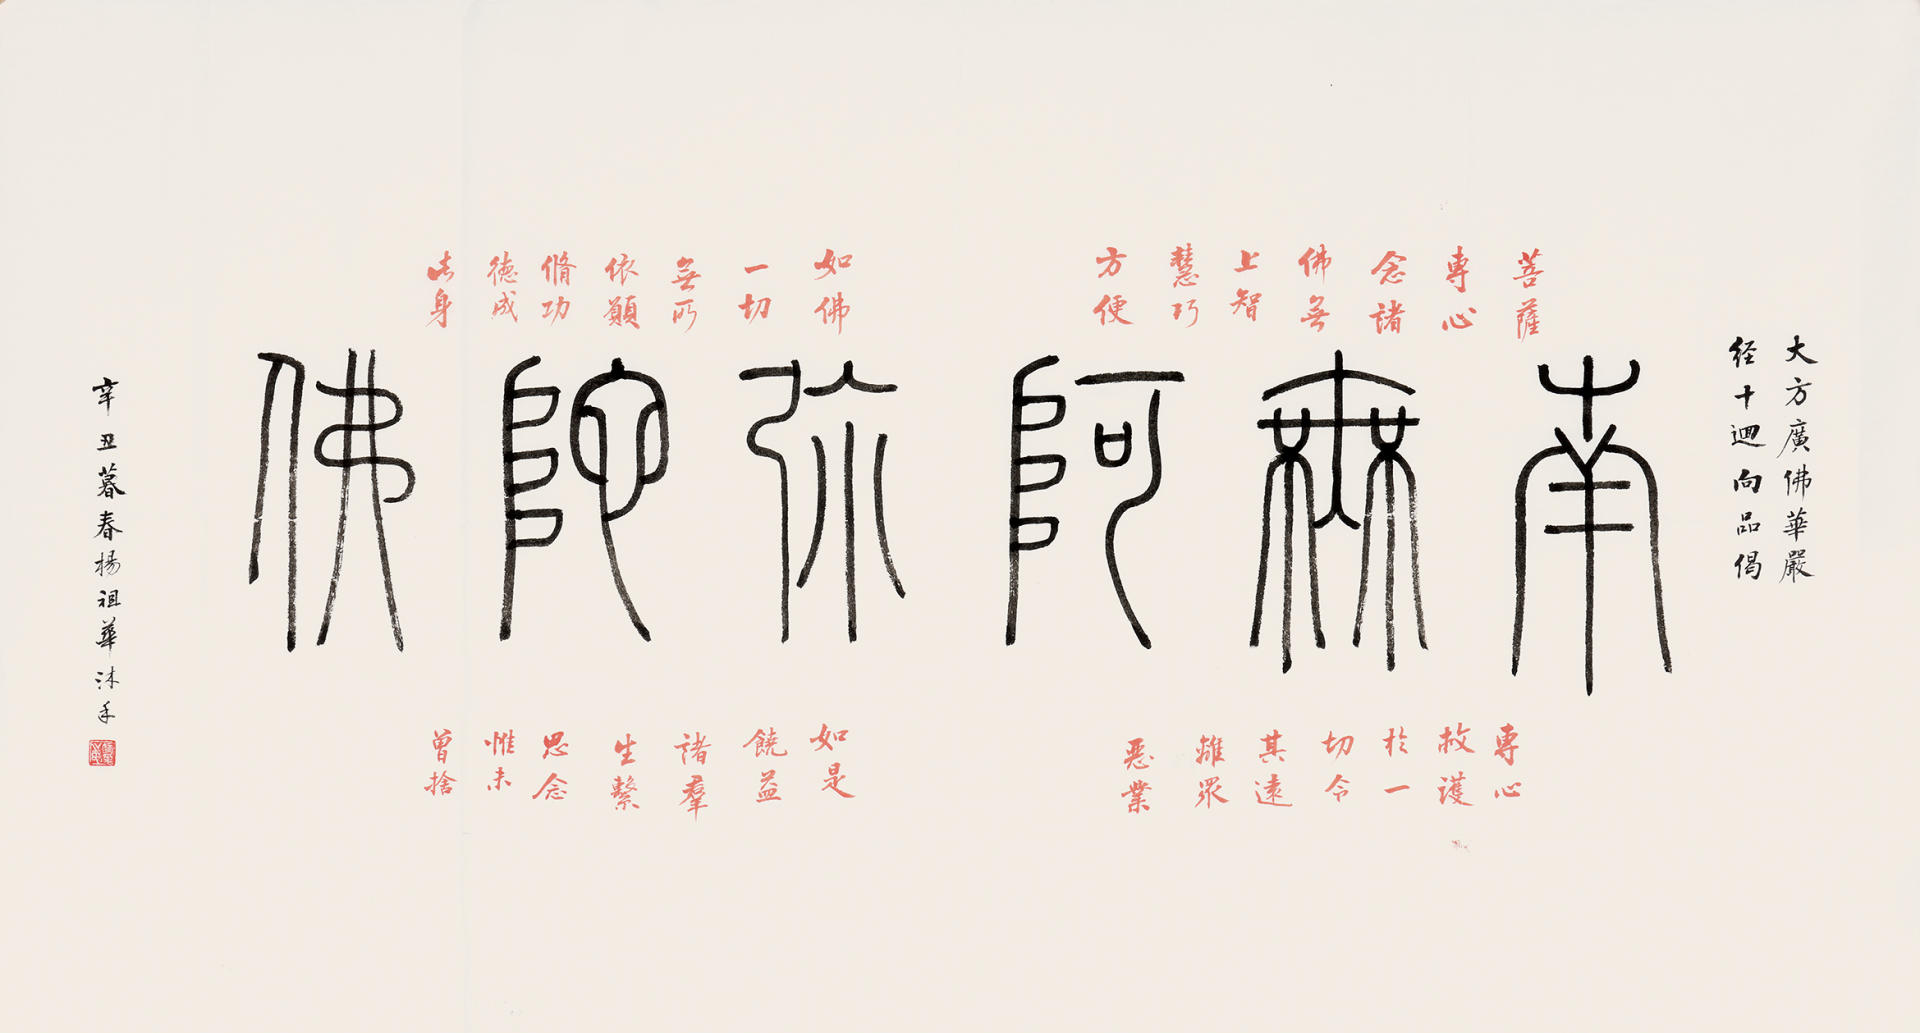 大方廣佛華嚴
経十迴向品偈
菩薩
專心
念諸
佛无
上智
慧巧
方便
如佛
一切
无所
依願
脩功
德成
此身
南無阿弥陀佛
專心
救護
於一
切令
其遠
離眾
惡業
如是
饒益
諸羣
生繫
思念
惟未
曾捨
辛丑暮春楊祖華沐手